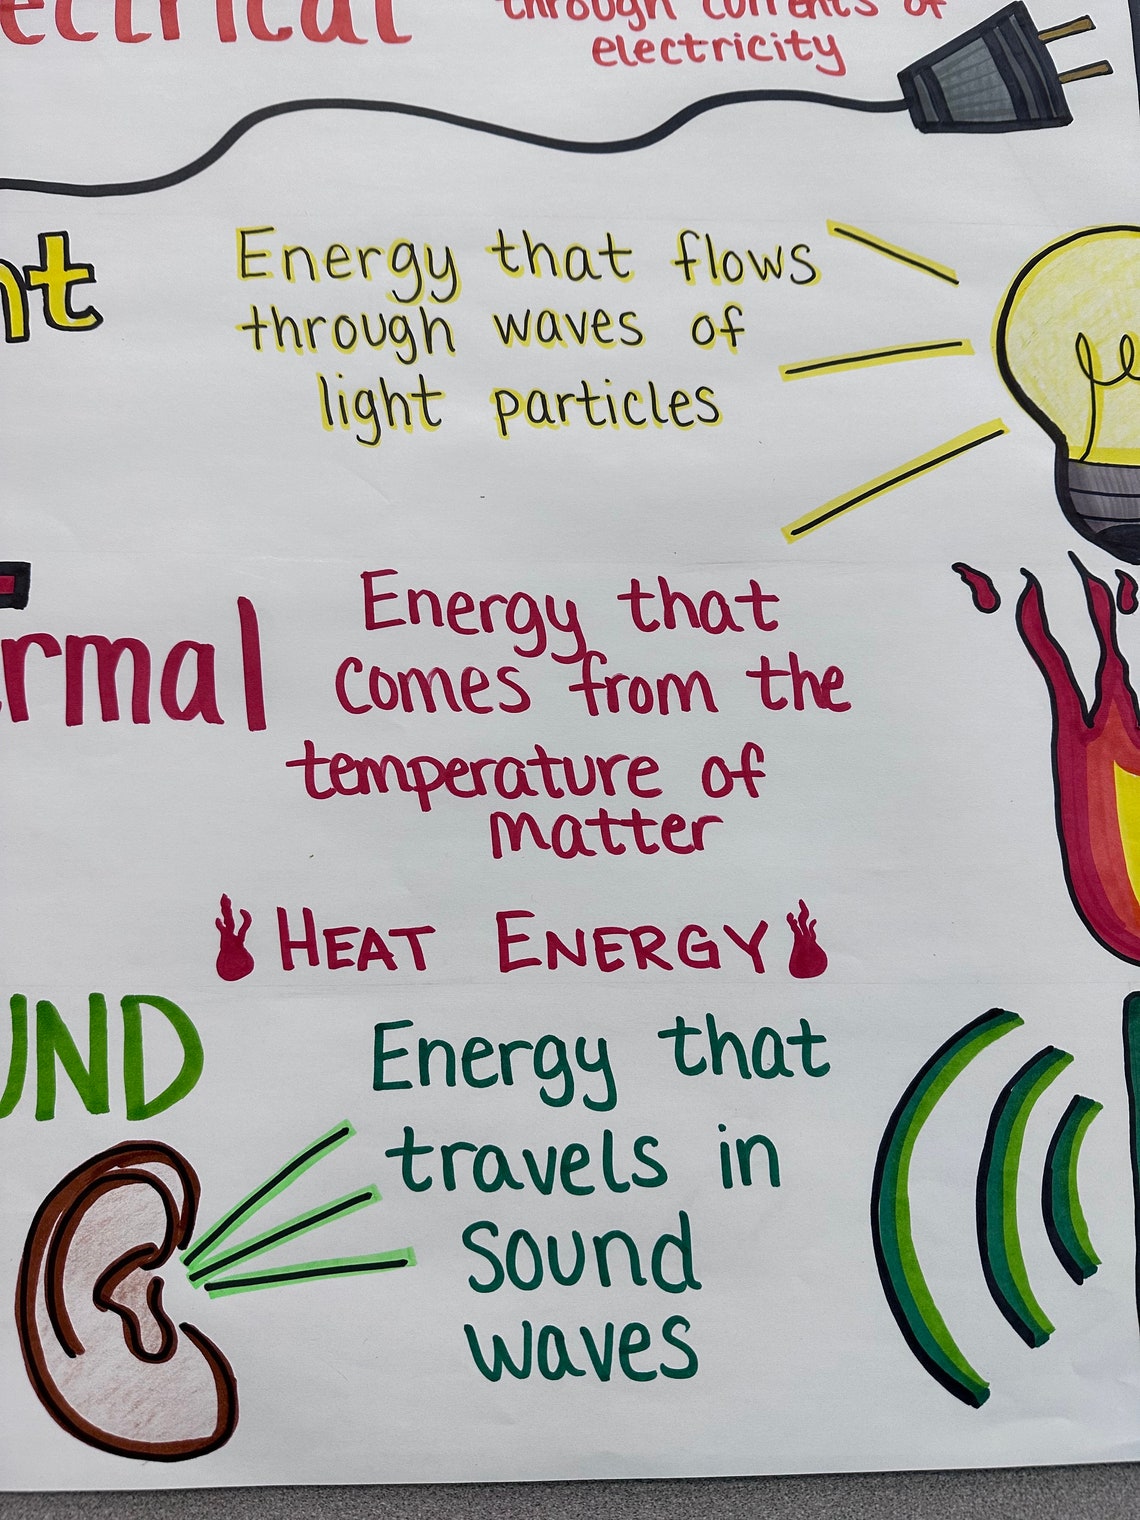 ectrical
through currents of
electricity
Energy that flows
through waves of
light particles
rmal
Energy that
comes from the
temperature of
matter
HEAT ENERGY
UND
Energy that
travels in
sound
waves